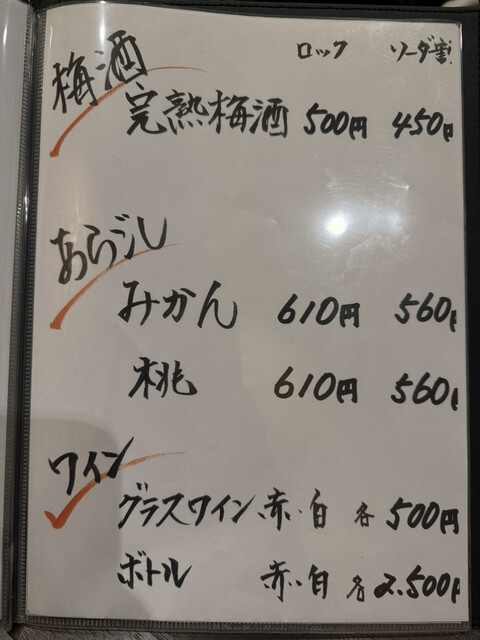 ロック ソーダ割
梅酒
完熟梅酒 500円 450円
あらごし
みかん 610円 560円
桃 610円 560円
ワイン
グラスワイン 赤・白 各 500円
ボトル 赤・白 各 2.500円